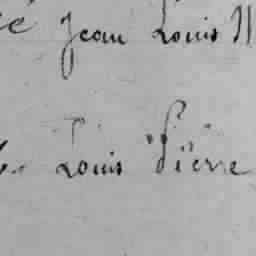 Jean Louis
Louis Pierre